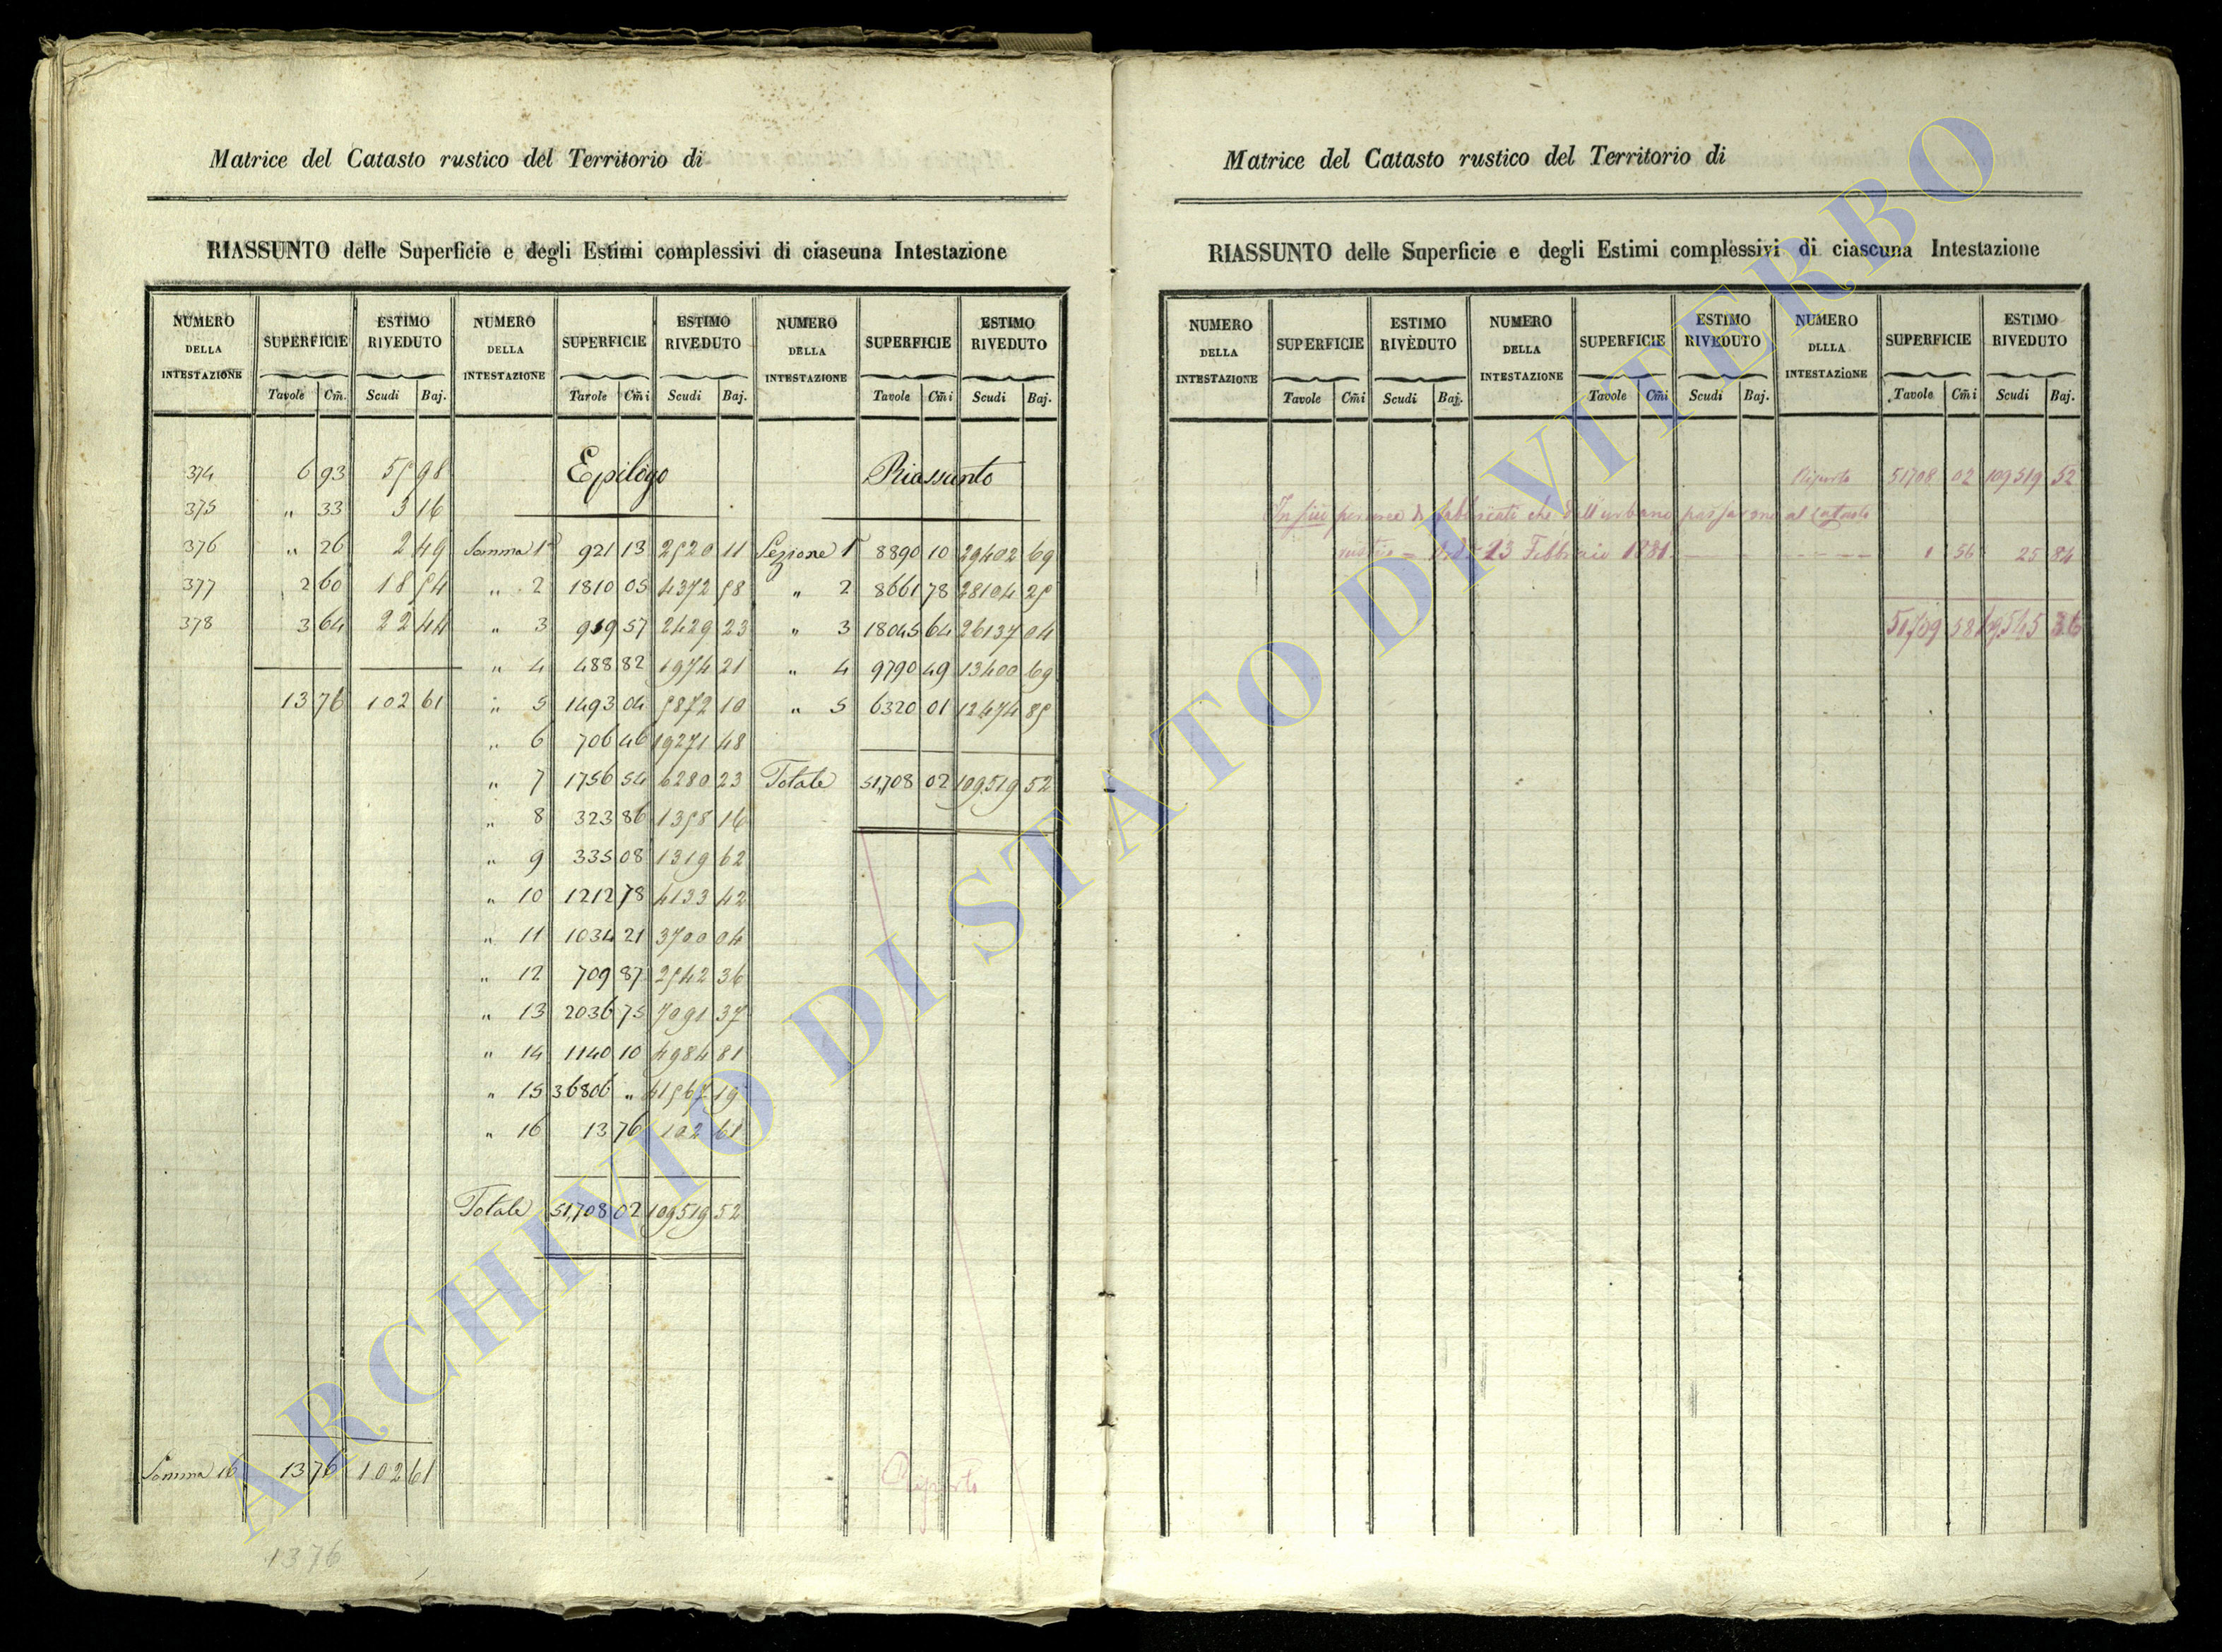 Matrice del Catasto rustico del Territorio di
RIASSUNTO delle Superficie e degli Estimi complessivi di ciascuna Intestazione
NUMERO DELLA INTESTAZIONE SUPERFICIE ESTIMO RIVEDUTO NUMERO DELLA INTESTAZIONE SUPERFICIE ESTIMO RIVEDUTO NUMERO DELLA INTESTAZIONE SUPERFICIE ESTIMO RIVEDUTO
Tavole Cm̃. Scudi Baj. Tavole Cm̃i Scudi Baj. Tavole Cm̃i Scudi Baj.
374 6 93 55 98 Epilogo Riassunto
375 " 33 3 16
376 " 26 2 49 Somma 1ª 921 13 2520 11 Sezione 1ª 8890 10 29402 69
377 2 60 18 54 " 2 1810 05 4372 58 " 2 8661 78 28104 25
378 3 64 22 44 " 3 919 57 2429 23 " 3 18045 64 26137 04
" 4 488 82 1974 21 " 4 9790 49 13400 69
13 76 102 61 " 5 1493 04 5872 10 " 5 6320 01 12474 85
" 6 706 46 19271 48
" 7 1756 54 6280 23 Totale 51,708 02 109519 52
" 8 323 86 1358 16
" 9 335 08 1319 62
" 10 1212 78 4133 42
" 11 1034 21 3700 04
" 12 709 87 2542 36
" 13 2036 75 7091 37
" 14 1140 10 4984 81
" 15 36806 " 41567 19
" 16 13 76 102 61
Totale 51,708 02 109519 52
Somma 16 13 76 102 61
Riporto
1376
Matrice del Catasto rustico del Territorio di
RIASSUNTO delle Superficie e degli Estimi complessivi di ciascuna Intestazione
NUMERO DELLA INTESTAZIONE SUPERFICIE ESTIMO RIVEDUTO NUMERO DELLA INTESTAZIONE SUPERFICIE ESTIMO RIVEDUTO NUMERO DLLLA INTESTAZIONE SUPERFICIE ESTIMO RIVEDUTO
Tavole Cm̃i Scudi Baj. Tavole Cm̃i Scudi Baj. Tavole Cm̃i Scudi Baj.
Riporto 51708 02 109519 52
In più di fabbricati che dall'urbano passarono al catasto
rustico 23 Febbraio 1881 1 56 25 84
51,709 58 109,545 36
ARCHIVIO DI STATO DI VITERBO